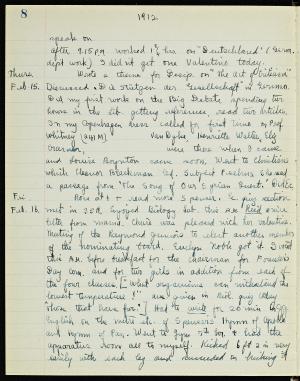 8
1912
speak on
after 9.15 P.M. worked 1 hrs on "Deutschland" (Germ.
dept work) I did not get one Valentine today.
Thurs. Wrote a theme for Descrip. on "The Art of
Feb. 15. Discussed "Die Stützen der Gesellschaft" in German.
Did my first work on the Big Debate spending two
hours in the Lib. getting references, read two articles.
In my Copenhagen dress I called for first time on Prof
Whitney (AHM) Van Dyke, Henrietta Weller, Elg
were there when I came
and Louise Boynton came soon. Went to Christians
which Eleanor Brackman led. Subject Psalms. She read
a passage from "The Song of Our Syrian Guest."
Fri. Rose at 6 & read more Spenser. section
Feb. 16. met in 258, enjoyed Biology hour. this AM. Read
letter from mama. Chris was pleased with her valentine.
Meeting of the Raymond juniors to elect another member
of the nominating board. Evelyn Noble got it. I voted
this AM. before breakfast for the Chairman for Founder's
Day Com. and for two girls in addition from each of
the four classes. ["What organisms can withstand the
lowest temperature?" was given in Biol. quiz
"whom that have fur."] Had to write for 20 min. in
English on the metre etc. of Spenser's Hymn of
and hymn of Pan. Went to Gym 5th hr. & had the
apparatus room all to myself. Kicked 6 ft 2 in very
easily with each leg and succeeded in